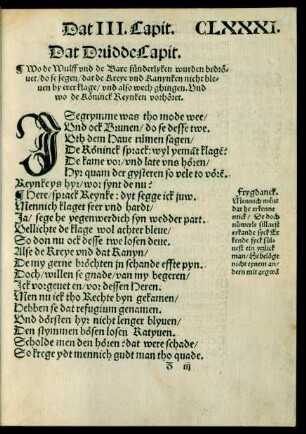 Dat III. Capit. CLXXXI.
Dat Drüdde Capit.
¶ Wo de Wulff vnd de Bare sünderlyken wurden bedrö-
uet/ do se segen/ dat de Kreye vnd Kanynken nicht ble-
uen by erer klage/ vnd also wech ghingen. Vnd
wo de Köninck Reynken vorhöret.
JSegrymme was tho mode wee/
Vnd ock Brunen/ do se desse twe.
Vth dem Haue rümen sagen/
De Köninck sprack: wyl yemāt klagē:
De kame vor/ vnd late vns hören/
Hyr quam der gysteren so vele to vörē.
Reynke ys hyr/ wor synt de nu?
¶ Here/ sprack Reynke: dyt segge ick juw.
Mennich klaget seer vnd hardt/
Ja/ sege he yegenwerdich syn wedder part.
Vellichte de klage wol achter bleue/
So don nu ock desse two losen deue.
Alse de Kreye vnd dat Kanyn/
De my gerne bröchten jn schande effte pyn.
Doch/ willen se gnade/ van my begeren/
Ick vorgeuet en/ vor dessen Heren.
Men nu ick tho Rechte byn gekamen/
Hebben se dat refugium genamen.
Vnd dörsten hyr nicht lenger blyuen/
Den slymmen bösen losen Katyuen.
Scholde men den hören: dat were schade/
So krege ydt mennich gudt man tho quade.
Frygdanck.
Mennich mēnt
dat he erkenne
mick/ De doch
nüwerle sülluest
erkande syck Er
kende syck sül-
uest ein yslick
man/ He belöge
nicht einem an/
dern mit argwā
iij